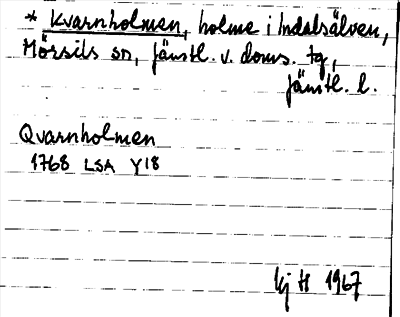 * Kvarnholmen, holme i Indalsälven,
Mörsils sn, jämtl. v. doms. tg,
jämtl. l.
Qvarnholmen
1768 LSA Y18
kj H 1967